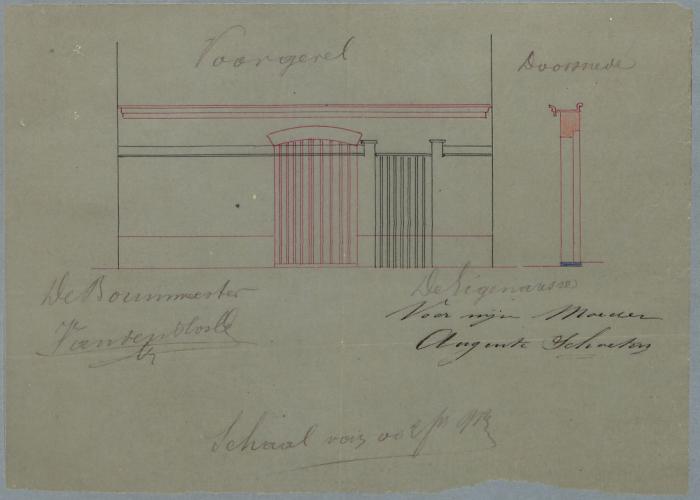 Voorgevel
Doorsnede
De Bouwmeester
De Eigenaresse
Voor mijn Moeder
Schaal van 0.02 pr